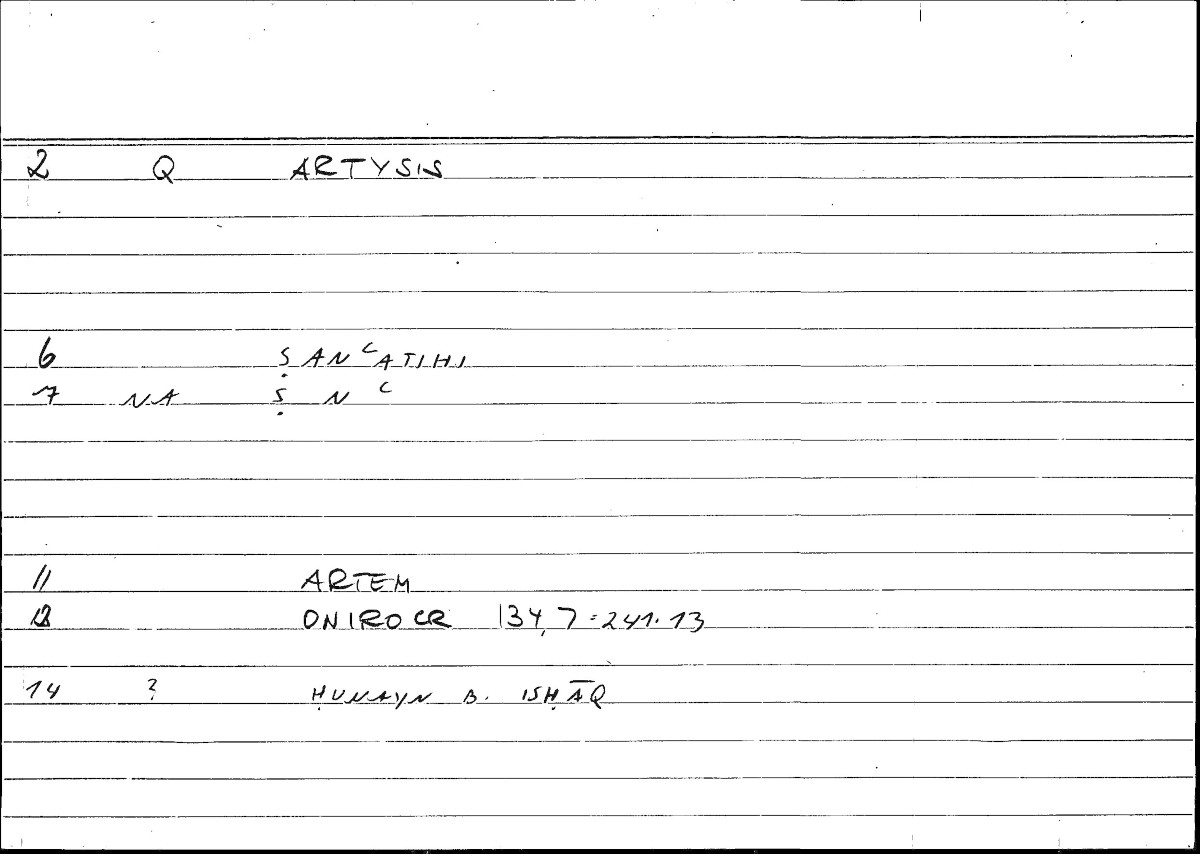 2 Q ARTYSIS
6 ṢANʿATIHI
7 NA Ṣ N ʿ
11 ARTEM
12 ONIROCR 134,7=241.13
14 ? ḤUNAYN B. ISḤĀQ